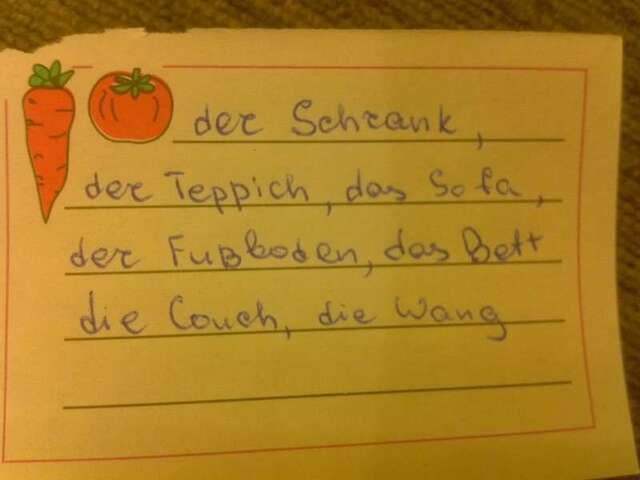 der Schrank,
der Teppich, das Sofa,
der Fußboden, das Bett
die Couch, die Wang